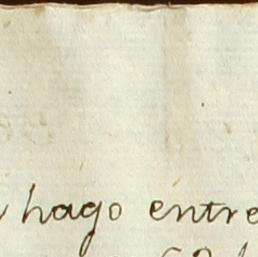 hago entre